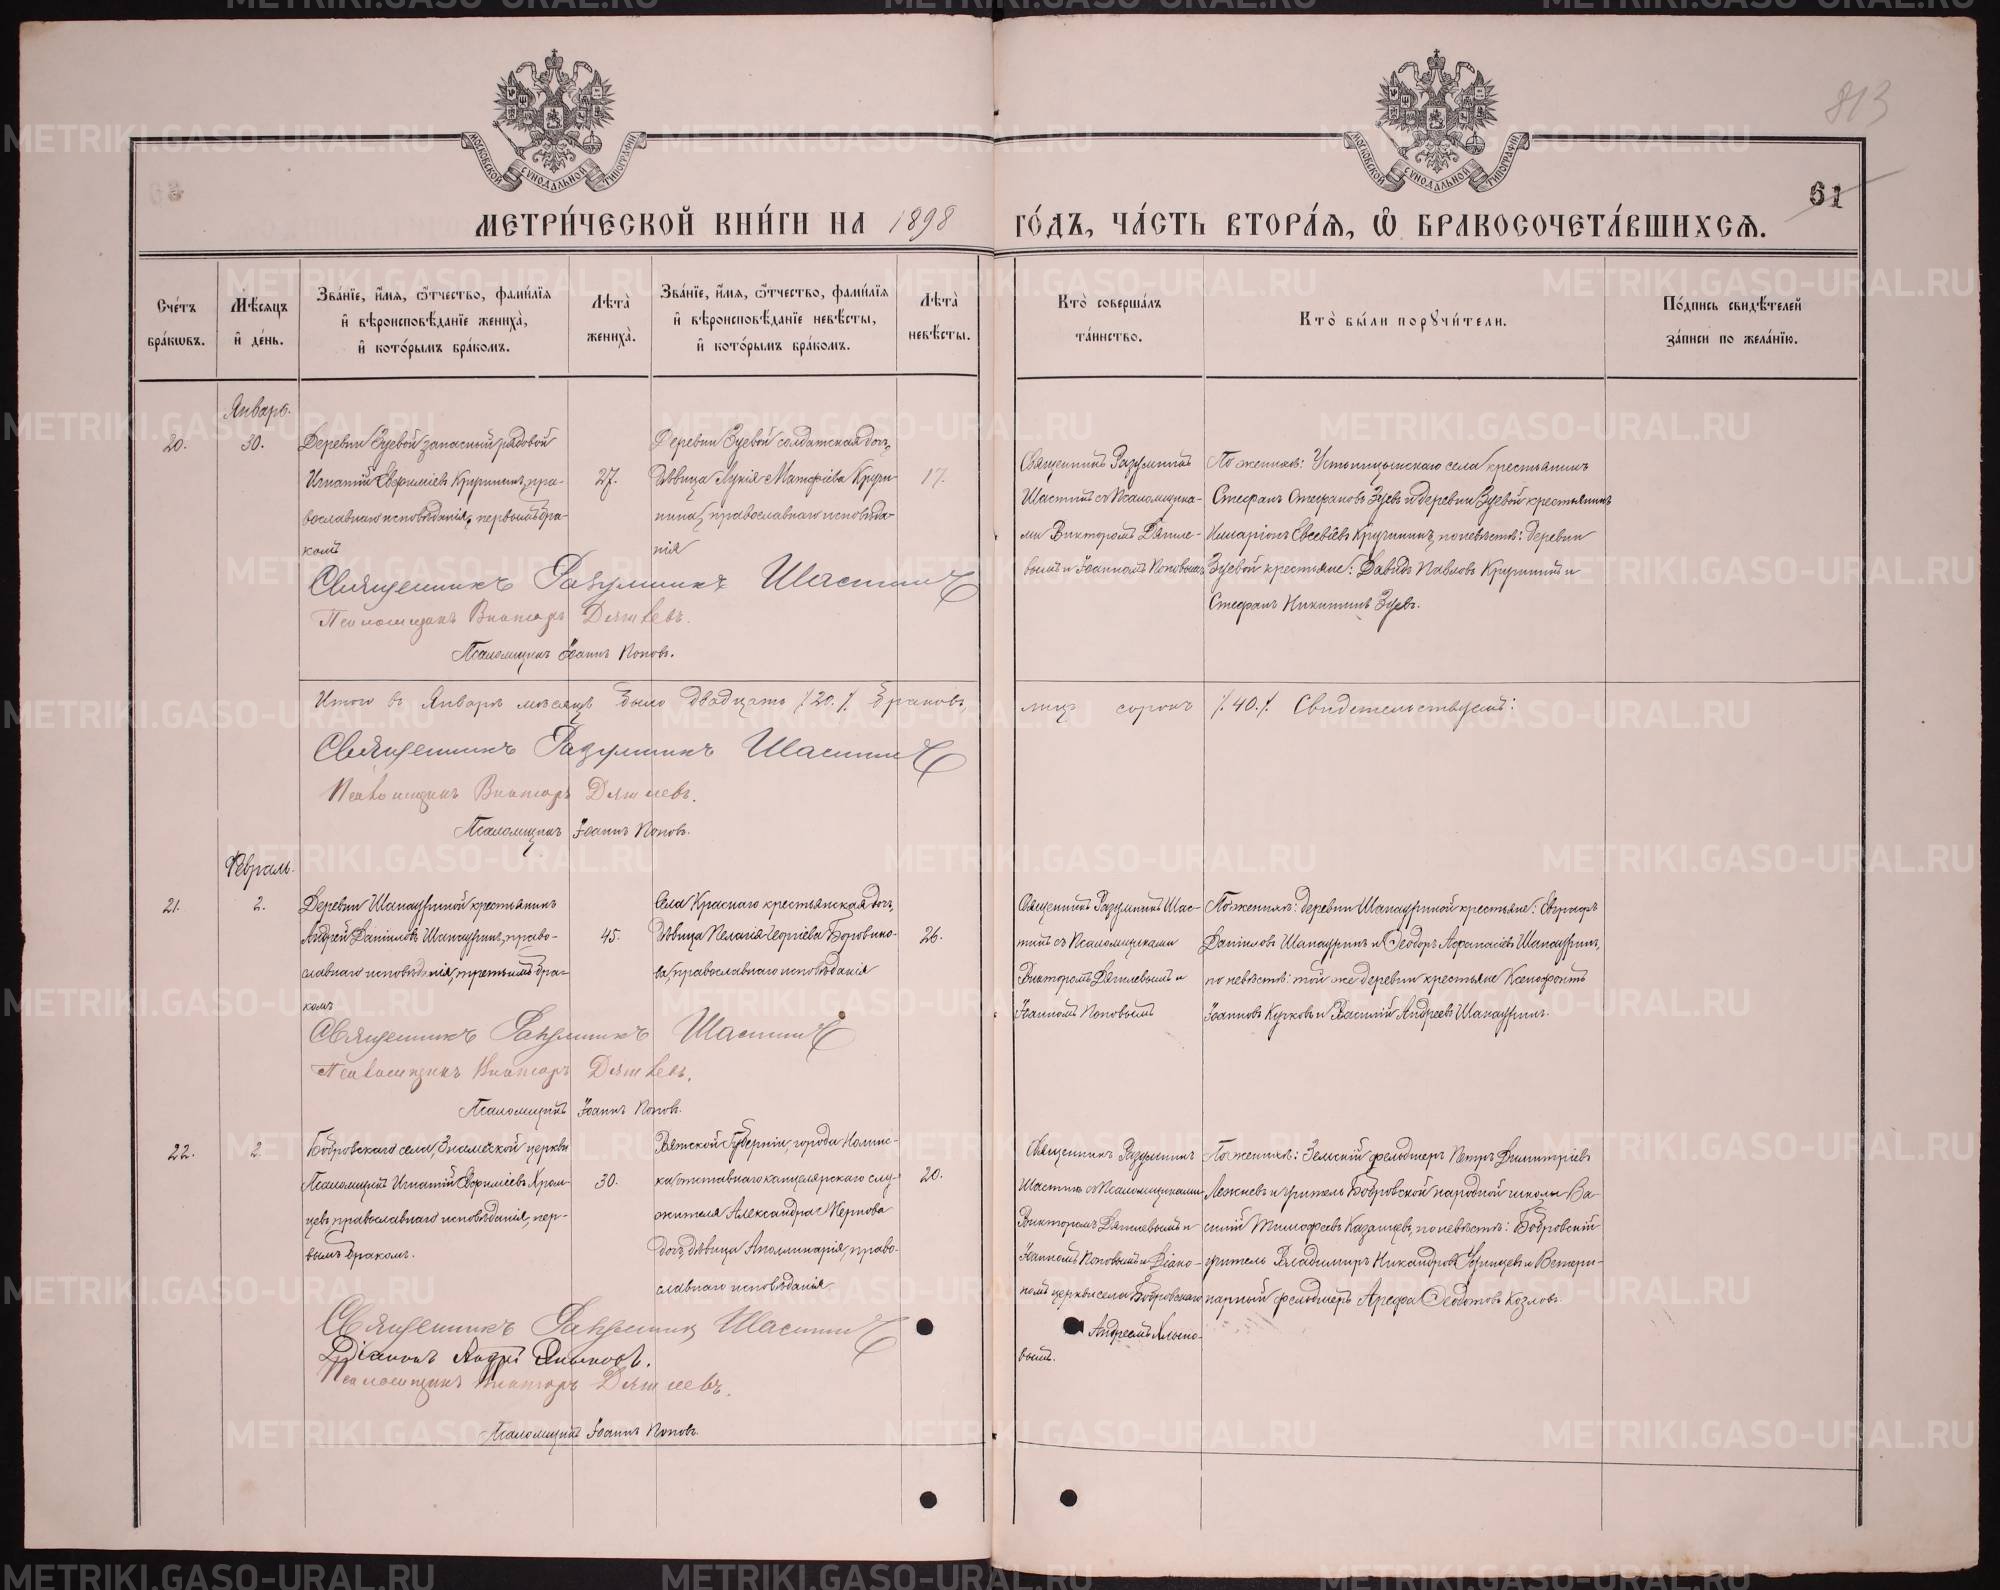 813
61
МОСКОВСКОЙ СѴНОДАЛЬНОЙ ТИПОГРАФІИ
МОСКОВСКОЙ СѴНОДАЛЬНОЙ ТИПОГРАФІИ
МЕТРИ́ЧЕСКОЙ КНИ́ГИ НА 1898 ГО́ДЪ, ЧА́СТЬ ВТОРА́Я, Ѡ БРАКОСОЧЕТА́ВШИХСЯ.
Сче́тъ бра́кѡвъ.
Мѣ́сяцъ и҆ де́нь.
Зва́нїе, и҆́мя, ѻ҆́тчество, фами́лїя
и҆ вѣроисповѣ́данїе жениха̀,
и҆ кото́рымъ бра́комъ.
Лѣта̀ жениха̀.
Зва́нїе, и҆́мя, ѻ҆́тчество, фами́лїя
и҆ вѣроисповѣ́данїе невѣ́сты,
и҆ кото́рымъ бра́комъ.
Лѣта̀ невѣ́сты.
Кто̀ соверша́лъ
та́инство.
Кто̀ бы́ли порꙋчи́тели.
По́дпись свидѣ́телей
за́писи по жела́нїю.
Январь.
20.
30.
Деревни Зуевой запасный рядовой
Игнатій Евфиміевъ Кругинъ, пра-
вославнаго исповѣданія, первымъ бра-
комъ
27.
Деревни Зуевой солдатская дочь,
дѣвица Лукія Матфіева Круги-
нина, православнаго исповѣда-
нія
17.
Священникъ Разумникъ
Шастинъ съ Псаломщика-
ми Викторомъ Дягиле-
вымъ и Іоанномъ Поповымъ
По женихѣ: Устьницынскаго села крестьянинъ
Стефанъ Стефановъ Зуевъ и деревни Зуевой крестьянинъ
Иларіонъ Евсевіевъ Кругининъ, по невѣстѣ: деревни
Зуевой крестьяне: Давидъ Павловъ Кругининъ и
Стефанъ Никитинъ Зуевъ.
Священникъ Разумникъ Шастинъ
Псаломщикъ Викторъ Дягилевъ.
Псаломщикъ Іоаннъ Поповъ.
Итого въ Январѣ мѣсяцѣ было двадцать /.20./. браковъ, лицъ сорокъ /.40./. Свидетельствуемъ:
Священникъ Разумникъ Шастинъ
Псаломщикъ Викторъ Дягилевъ.
Псаломщикъ Іоаннъ Поповъ.
Февраль.
21.
2.
Деревни Шапауриной крестьянинъ
Андрей Даниловъ Шапауринъ, право-
славнаго исповѣданія, третьимъ бра-
комъ
45.
Села Краснаго крестьянская дочь,
дѣвица Пелагія Георгіева Боровико-
ва, православнаго исповѣданія
26.
Священникъ Разумникъ Шас-
тинъ съ Псаломщиками
Викторомъ Дягилевымъ и
Іоанномъ Поповымъ
По женихѣ: деревни Шапауриной крестьяне: Евграфъ
Даниловъ Шапауринъ и Ѳеодоръ Афанасіевъ Шапауринъ,
по невѣстѣ: той же деревни крестьяне Ксенофонтъ
Іоанновъ Курковъ и Василій Андреевъ Шапауринъ.
Священникъ Разумникъ Шастинъ
Псаломщикъ Викторъ Дягилевъ.
Псаломщикъ Іоаннъ Поповъ.
22.
2.
Бобровскаго села, Знаменской церкви
Псаломщикъ Игнатій Евфиміевъ Хром-
цевъ, православнаго исповѣданія, пер-
вымъ бракомъ.
30.
Вятской Губерніи, города Нолинс-
ка отставнаго канцелярскаго слу-
жителя Александра Чернова
дочь, дѣвица Аполлинарія, право-
славнаго исповѣданія.
20.
Священникъ Разумникъ
Шастинъ съ Псаломщиками
Викторомъ Дягилевымъ и
Іоанномъ Поповымъ и Діако-
номъ церкви села Бобровскаго
Андреемъ
вымъ.
По женихѣ: Земскій фельдшеръ Петръ Димитріевъ
Лежневъ и учитель Бобровской народной школы Ва-
силій Тимофеевъ Казанцевъ, по невѣстѣ: Бобровскій
учитель Владимиръ Никандровъ и Ветери-
нарный фельдшеръ Арефа Ѳеодотовъ Козловъ.
Священникъ Разумникъ Шастинъ
Діаконъ
Псаломщикъ Викторъ Дягилевъ.
Псаломщикъ Іоаннъ Поповъ.
METRIKI.GASO-URAL.RU